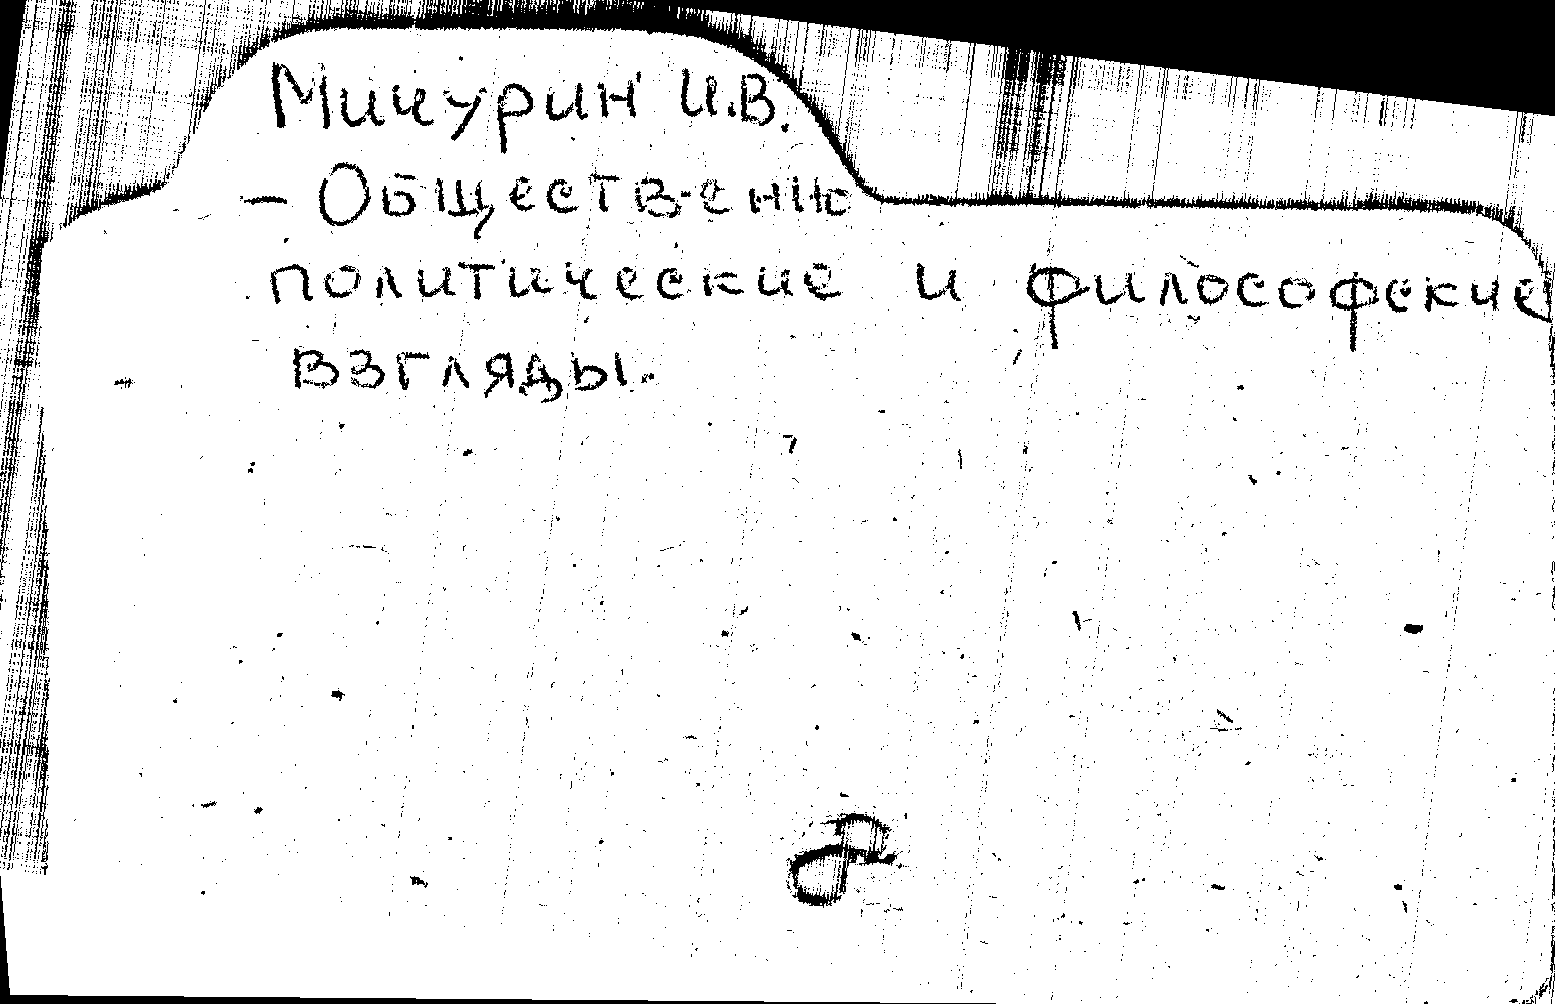 Мичурин И.В.
– Обществ-енно
политические и философские
взгляды.